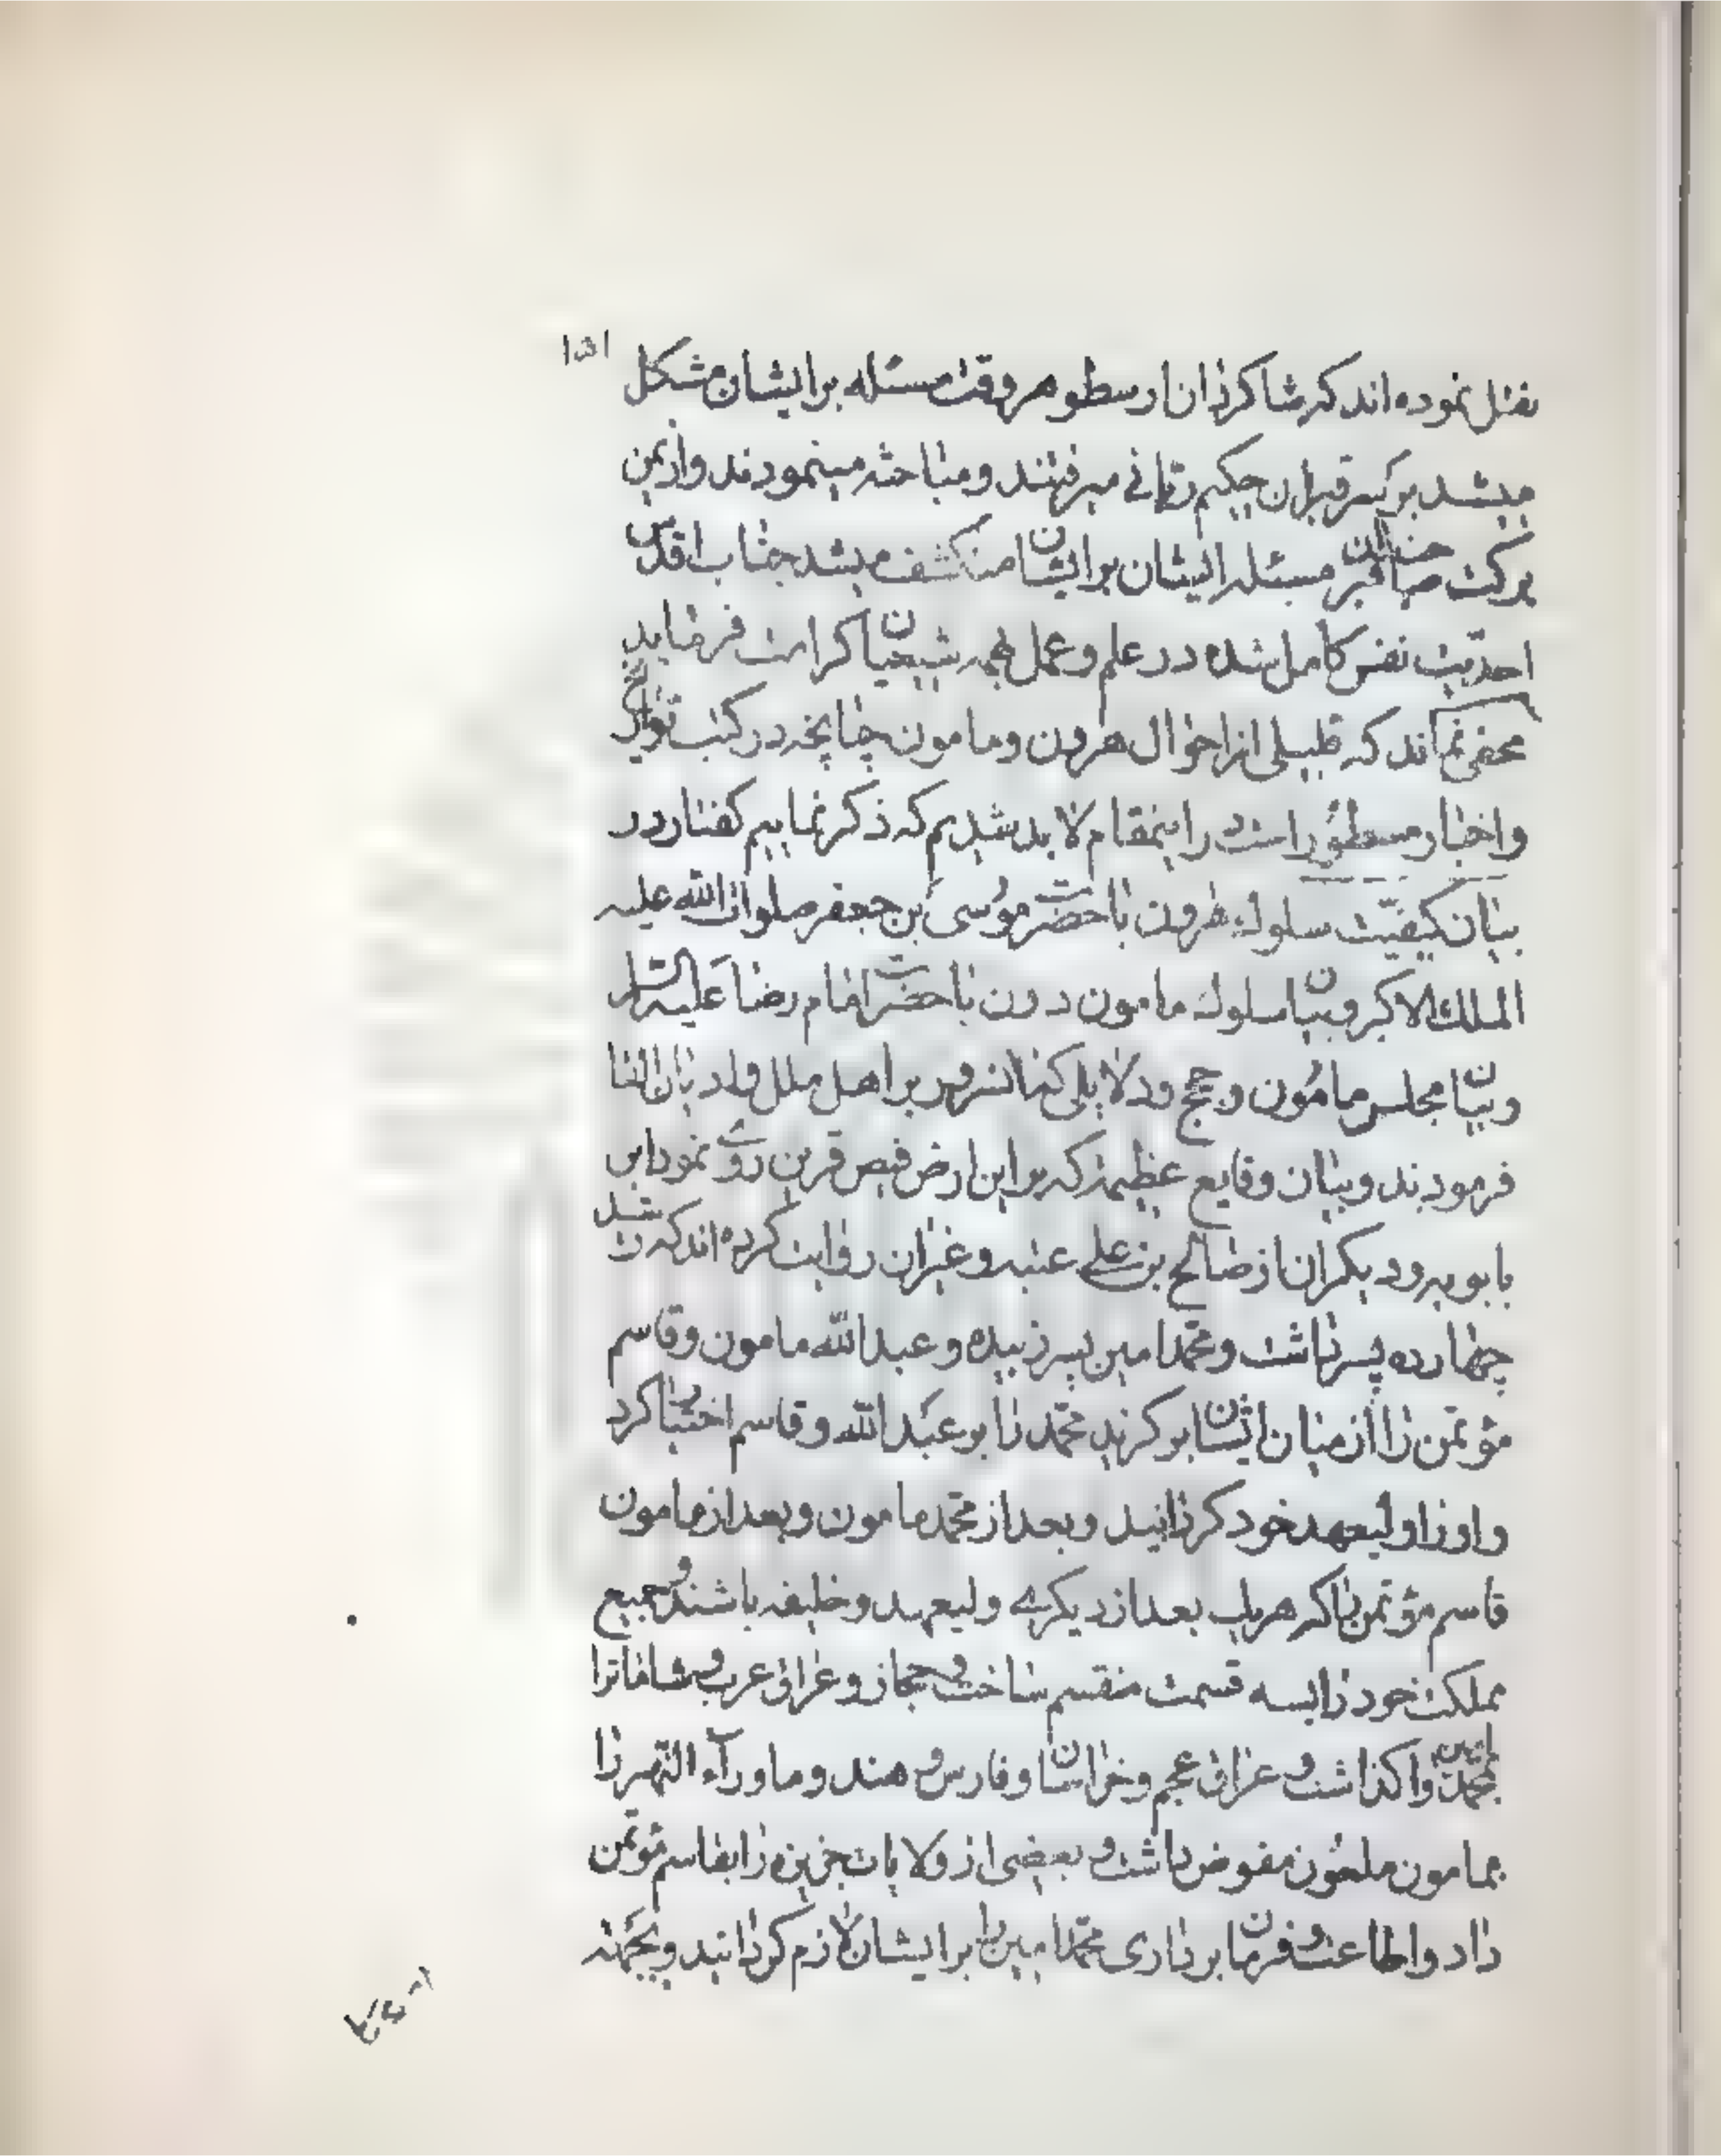 ۱۵۱
نقل نموده اند که شاکردان ارسطو هر وقت مسئله بر ایشان مشکل
میشد بر سر قبر ان حکیم ربانی میرفتند و مباحثه مینمودند و از یمن
برکت صاحب ان قبر مسئله ایشان بر ایشان منکشف میشد جناب اقدس
احدیت نفس کامل شده در علم و عمل بهمه شیعیان کرامت فرماید
مخفی نماند که قلیلی از احوال هرون و مامون چنانچه در کتب تواریخ
و اخبار مسطور است در اینمقام لابد شدیم که ذکر نماییم کفتار در
بیان کیفیت سلوك هرون با حضرت موسی بن جعفر صلوات الله علیه
الملك الاکبر و بیان سلوك مامون دون با حضرت امام رضا علیه السلام
و بیان مجلس مامون و حجج و دلایلی که انسرور بر اهل ملل و ادیان القا
فرمودند و بیان وقایع عظیمه که بر این ارض فیض قرین روی نمود ابن
بابویه و دیکران از صالح بن علی عتبه و غیر ان روایت کرده اند که رشید
چهارده پسر داشت و محمد امین پسر زبیده و عبد الله مامون و قاسم
مؤتمن را از میان ایشان بر کزید محمد را بر عبد الله و قاسم اختیار کرد
و او را ولیعهد خود کردانید و بعد از محمد مامون و بعد از مامون
قاسم مؤتمن را که هر یك بعد از دیکری ولیعهد و خلیفه باشند و جمیع
مملکت خود را بسه قسمت منقسم ساخت و حجاز و عراق عرب و شاماترا
بمحمد امین واکذاشت و عراق عجم و خراسان و فارس و هند و ماورآء النهر را
بمامون ملعون مفوض داشت و بعضی از ولایات جزیره را بقاسم مؤتمن
داد و اطاعت و فرمان برداری محمد امین را بر ایشان لازم کردانید و بجهته